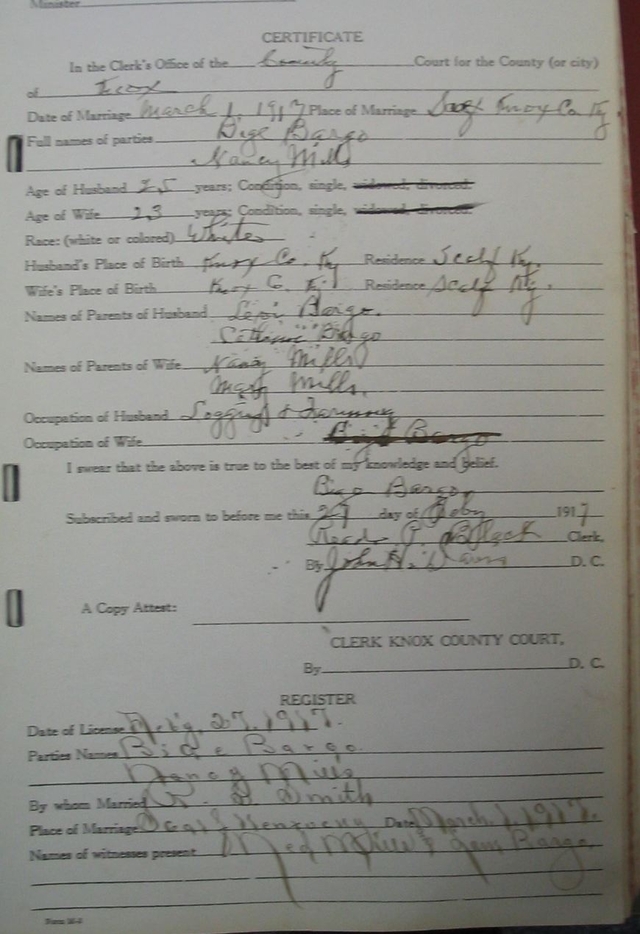 Minister
CERTIFICATE
In the Clerk's Office of the County Court for the County (or city)
of Knox
Date of Marriage March 1, 1917 Place of Marriage Scalf Knox Co Ky
Full names of parties Bige Bargo
Nancy Mills
Age of Husband 25 years; Condition, single, widowed, divorced.
Age of Wife 23 years; Condition, single, widowed, divorced.
Race: (white or colored) White
Husband's Place of Birth Knox Co. Ky Residence Scalf Ky.
Wife's Place of Birth Knox C. Ky Residence Scalf Ky.
Names of Parents of Husband Levi Bargo.
Bargo
Names of Parents of Wife Mills
Mary Mills.
Occupation of Husband Logging & Farming
Occupation of Wife Bige Bargo
I swear that the above is true to the best of my knowledge and belief.
Bige Bargo
Subscribed and sworn to before me this 27 day of Feby 1917
Read P. Black Clerk,
By John H. D. C.
A Copy Attest:
CLERK KNOX COUNTY COURT,
By D. C.
REGISTER
Date of License 27, 1917.
Parties Names Bige Bargo.
Nancy Mills
By whom Married Smith
Place of Marriage Scalf Kentucky Date March, 1, 1917.
Names of witnesses present Mills & Bargo
Form 26-S